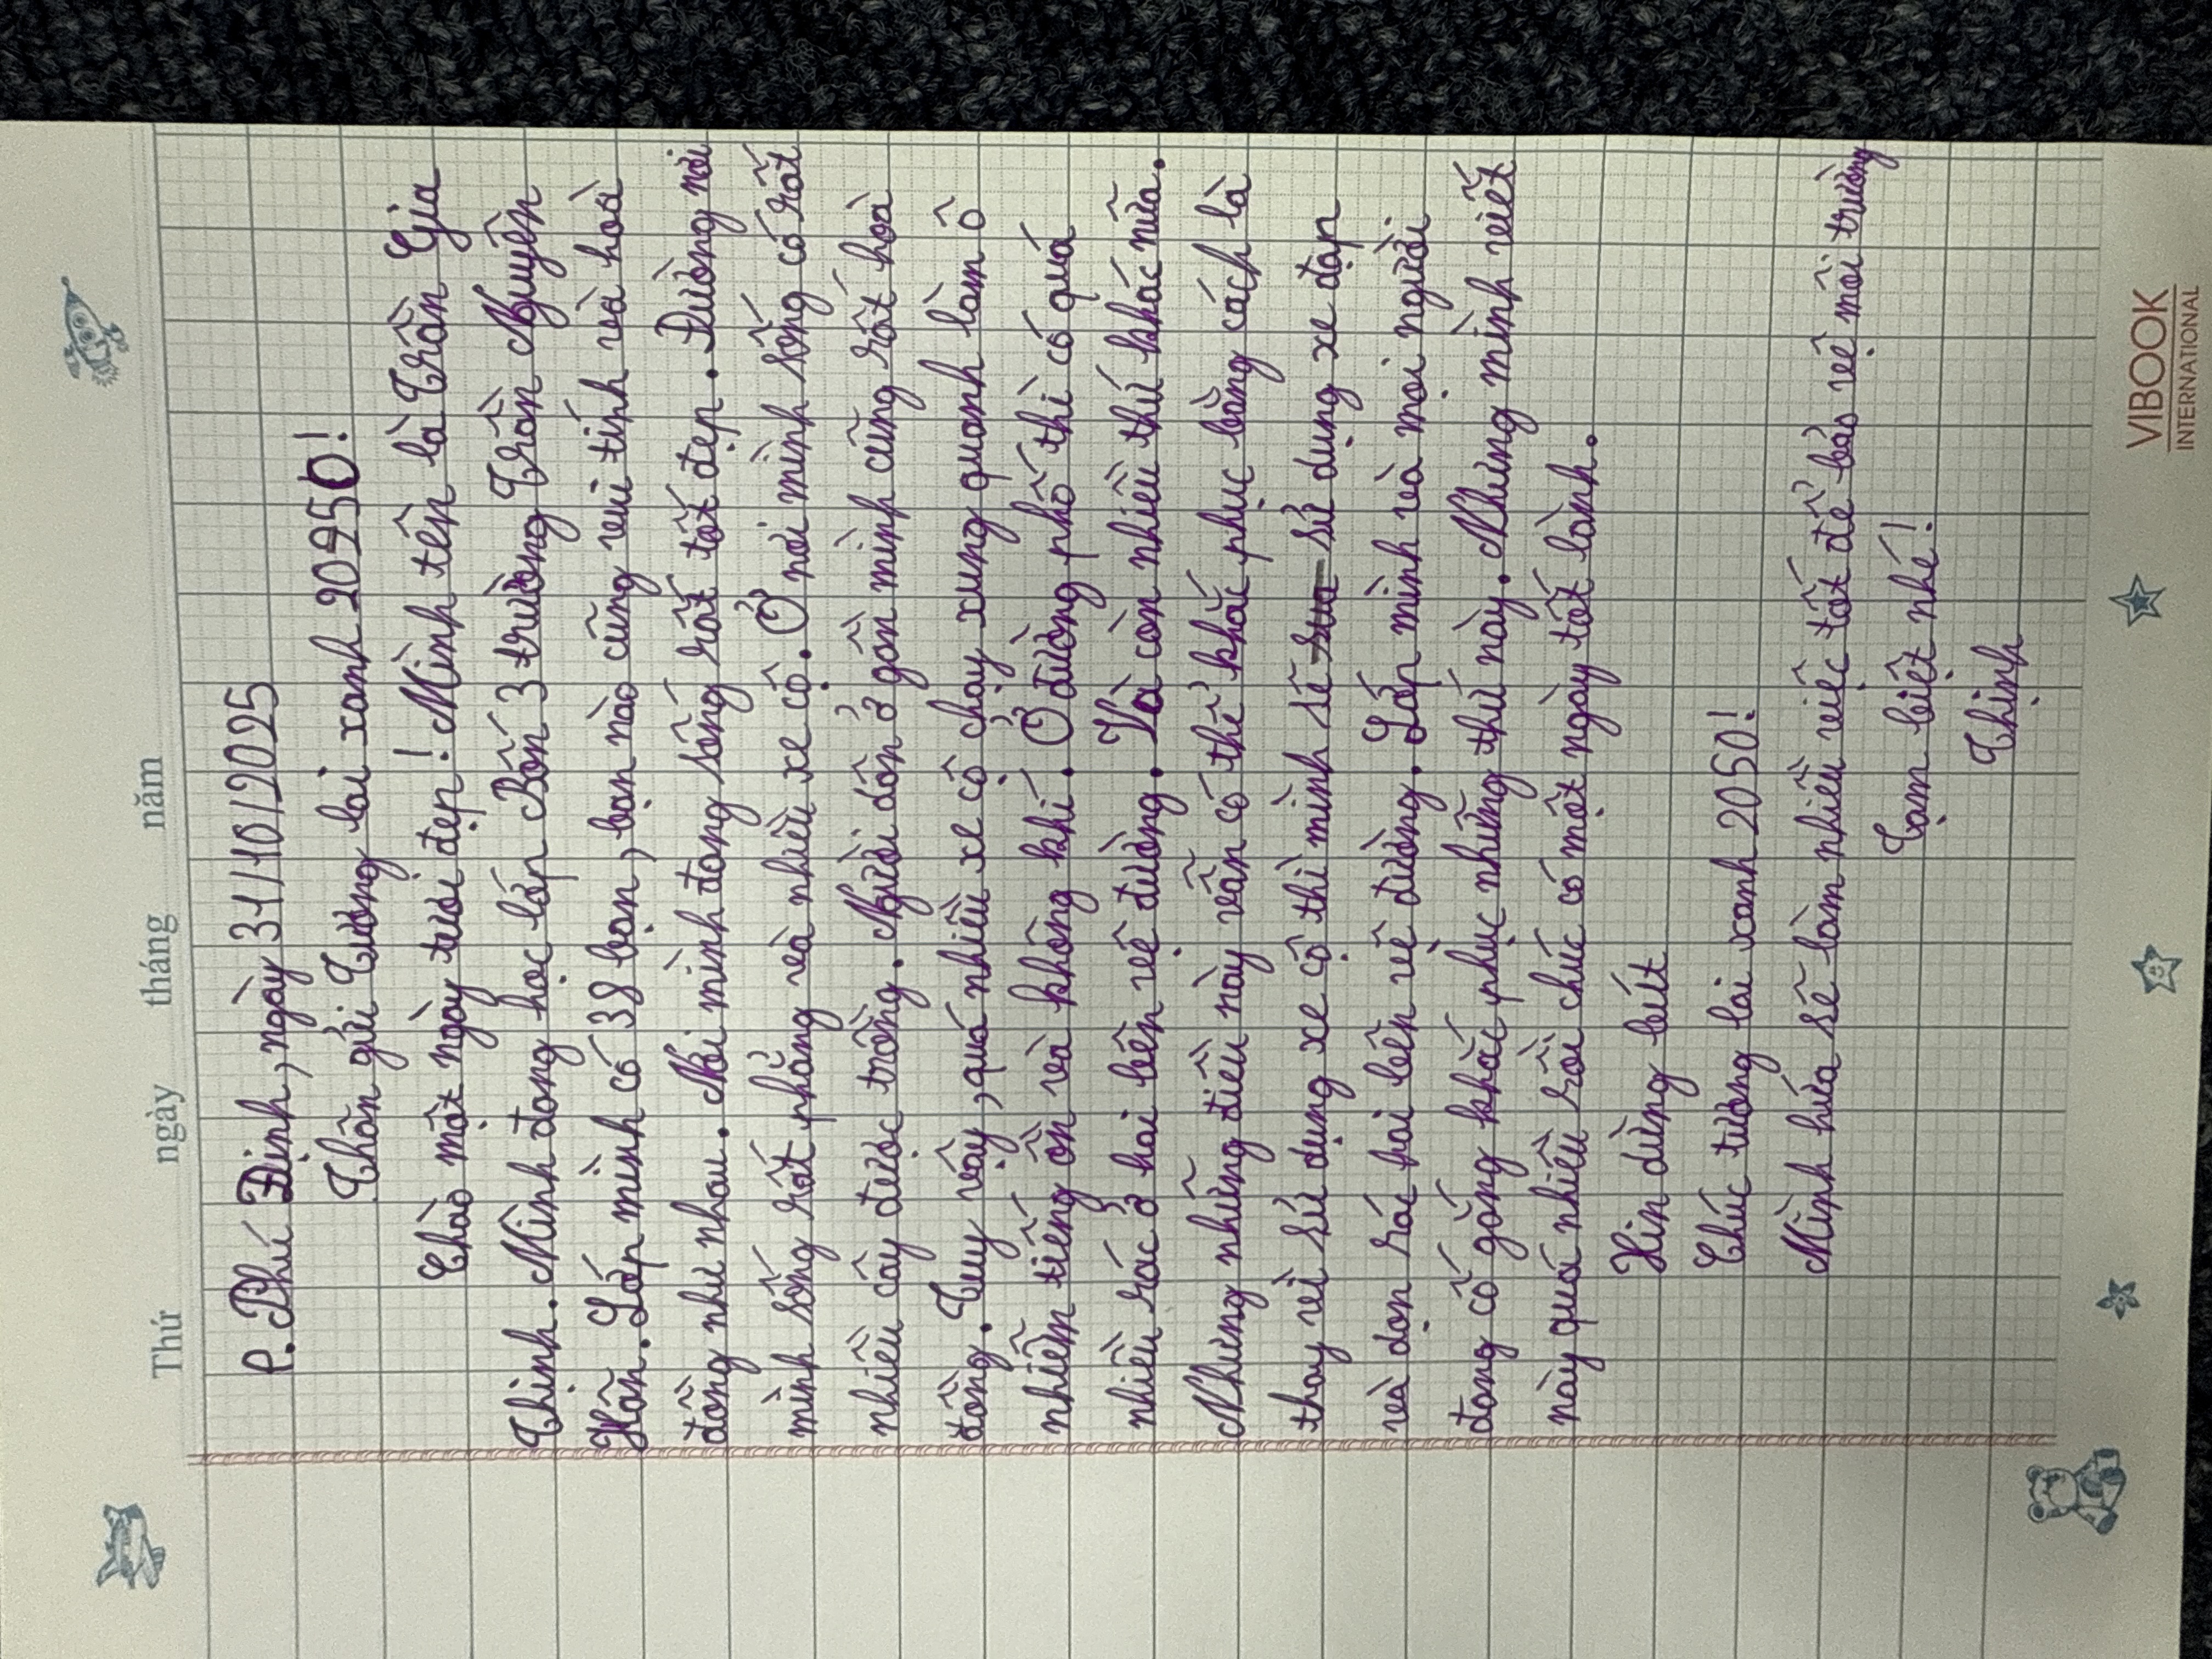 Thứ ngày tháng năm
P. Phú Định, ngày 31/10/2025
Thân gửi Tương lai xanh 20950!
Chào một ngày tươi đẹp! Mình tên là Trần Gia
Thịnh. Mình đang học lớp Bốn 3 trường Trần Nguyên
Hãn. Lớp mình có 38 bạn, bạn nào cũng vui tính và hoà
đồng như nhau. Nơi mình đang sống rất tốt đẹp. Đường nơi
mình sống rất phẳng và nhiều xe cộ. Ở nơi mình sống có rất
nhiều cây được trồng. Người dân ở gần mình cũng rất hoà
đồng. Tuy vậy, quá nhiều xe cộ chạy xung quanh làm ô
nhiễm tiếng ồn và không khí. Ở đường phố thì có quá
nhiều rác ở hai bên vệ đường. Và còn nhiều thứ khác nữa.
Nhưng những điều này vẫn có thể khắc phục bằng cách là
thay vì sử dụng xe cộ thì mình sẽ sua sử dụng xe đạp
và dọn rác hai bên vê đường. Lớp mình và mọi người
đang cố gắng khắc phục những thứ này. Nhưng mình viết
này quá nhiều rồi chúc có một ngày tốt lành.
Xin dừng bút
Chúc tương lai xanh 2050!
Mình hứa sẽ làm nhiều việc tốt để bảo vệ môi trường
Tạm biệt nhé!
Thịnh
VIBOOK
INTERNATIONAL